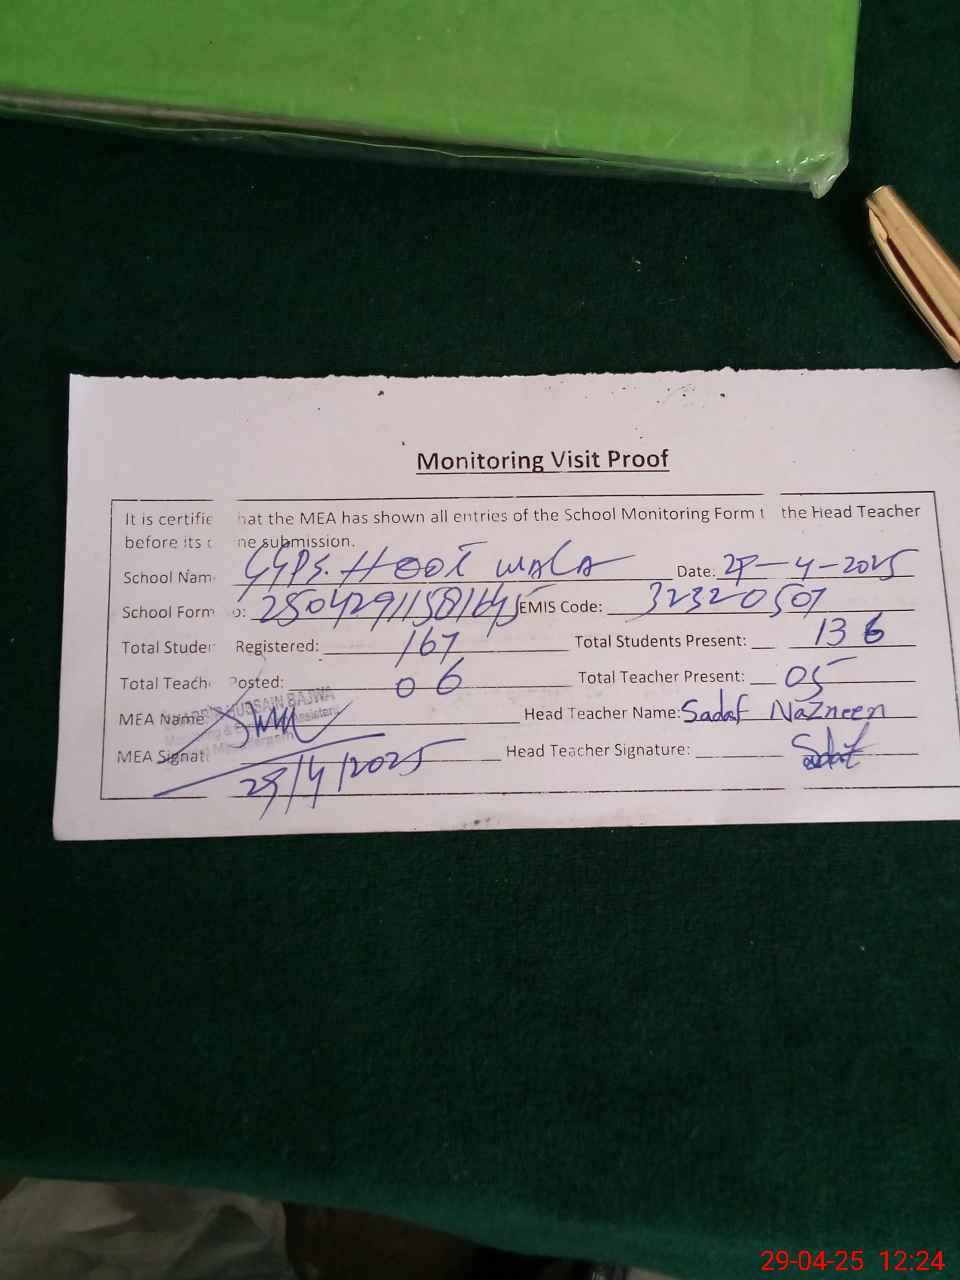 Monitoring Visit Proof
It is certifie hat the MEA has shown all entries of the School Monitoring Form t the Head Teacher
before its ne submission.
School Nam GGPS. HOOT WALA Date: 29-4-2025
School Form o: 25042911581645 EMIS Code: 32320507
Total Studer Registered: 167 Total Students Present: 136
Total Teach Posted: 06 Total Teacher Present: 05
MEA Name HUSSAIN BAJWA Head Teacher Name: Sadaf Nazneen
MEA Signat Head Teacher Signature: Sadaf
29/4/2025
29-04-25 12:24